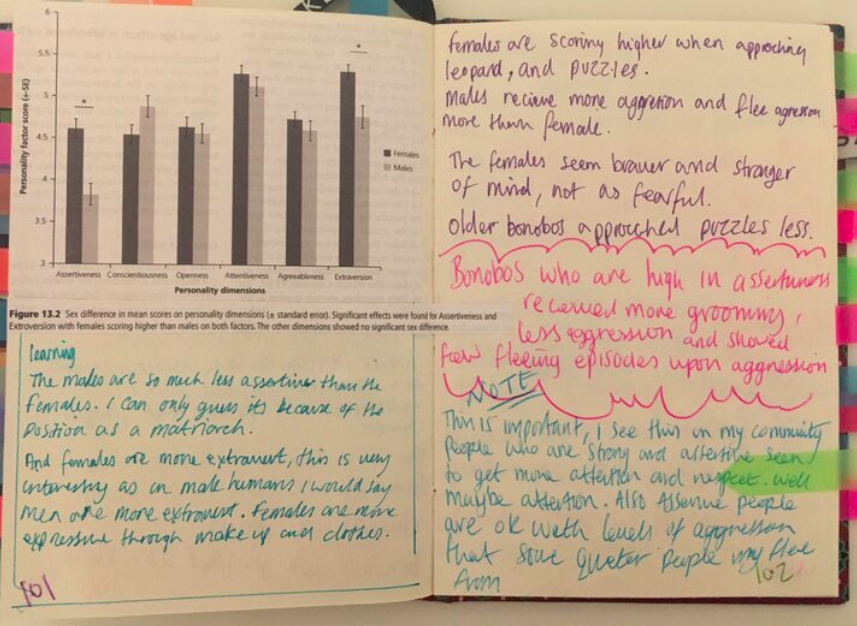 6
5.5
5
4.5
4
3.5
3
Personality factor score (+-SE)
*
*
Females
Males
Assertiveness Conscientiousness Openness Attentiveness Agreeableness Extraversion
Personality dimensions
Figure 13.2 Sex difference in mean scores on personality dimensions (± standard error). Significant effects were found for Assertiveness and
Extroversion with females scoring higher than males on both factors. The other dimensions showed no significant sex difference.
learning
The males are so much less assertive than the
females. I can only guess its because of the
position as a matriarch.
And females are more extravert, this is very
interesting as in male humans I would say
men are more extrovert. Females are more
expressive through make up and clothes.
101
females are scoring higher when approching
leopard, and puzzles.
Males recieve more aggretion and flee agression
more then female.
The females seem braver and stronger
of mind, not as fearful.
Older bonobos approached puzzles less.
Bonobos who are high in
received more grooming,
less aggression and showed
few fleeing episodes upon aggression
NOTE
This is important, I see this in my community
people who are strong and assertive seen
to get more attention and respect. Well
maybe attention. Also people
are ok with levels of aggression
that some people may flee
from
102